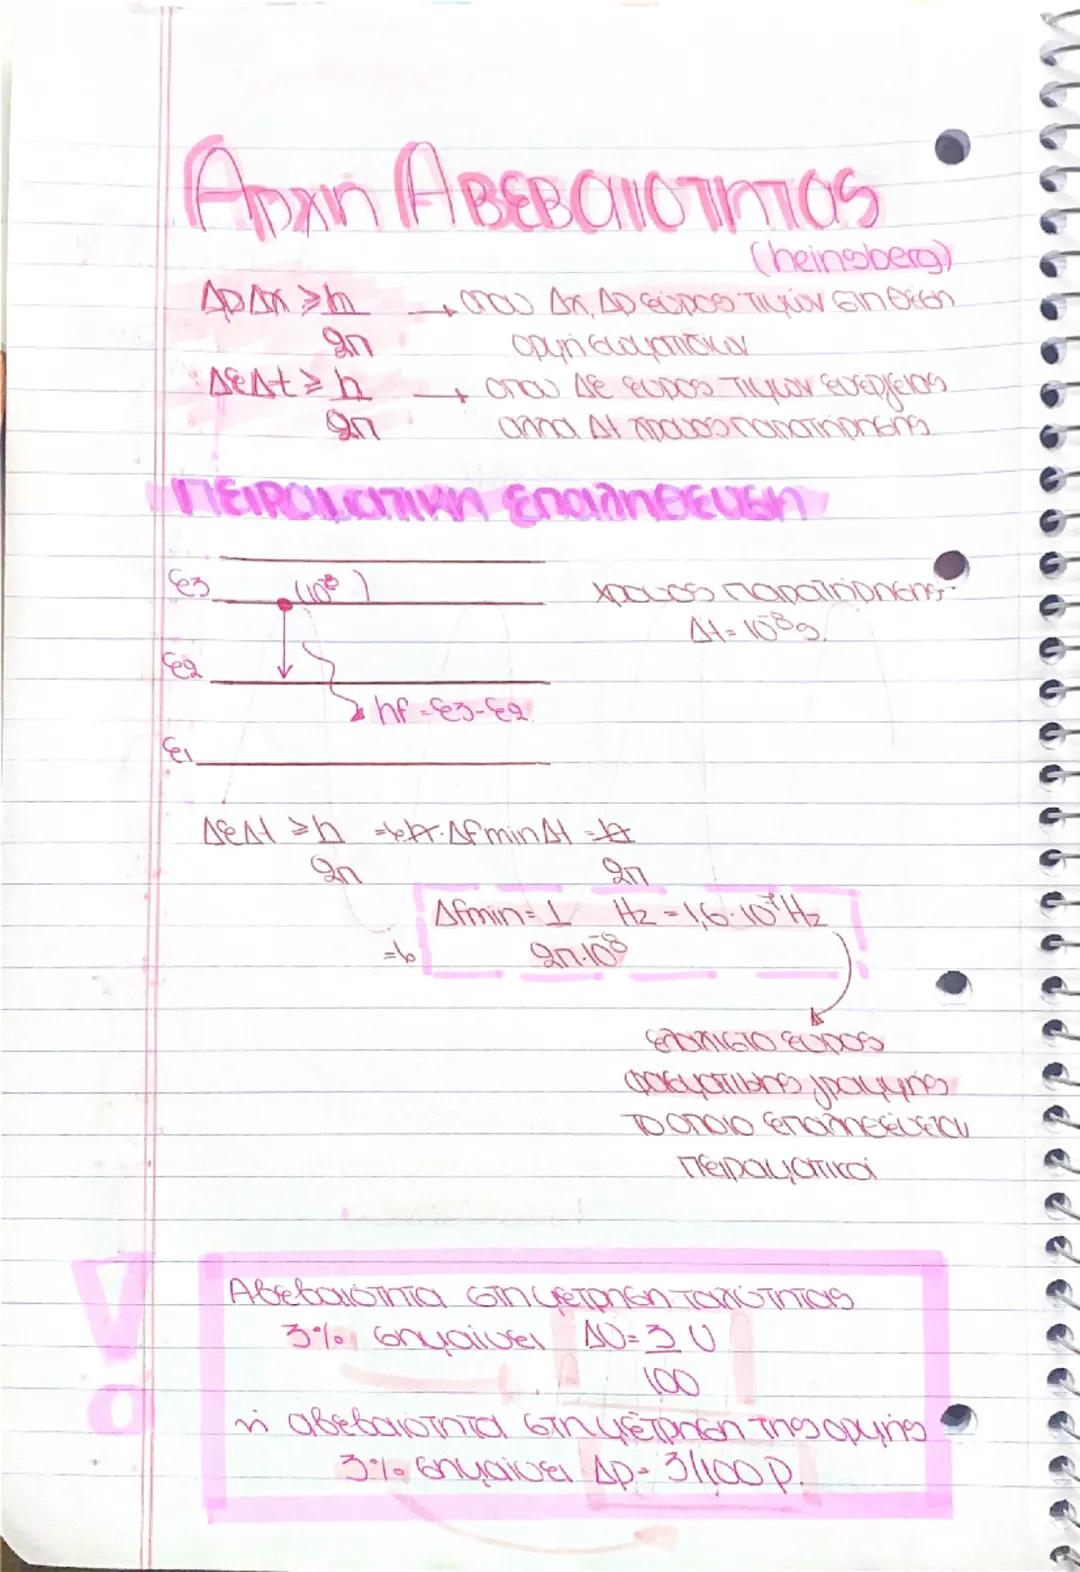 Αρχη Αβεβαιοτητας
(heinsberg)
ΔpΔx ≥ h → οπου Δx, Δp ευρος τιμών στη θέση
2π ορμή σωματιδίων
ΔεΔt ≥ h → οπου Δε ευρος τιμων ενεργειας
2π αλλα Δt χρονος παρατηρησης
Πειραματικη επαληθευση
ε3 (10⁻⁸)
χρονος παρατηρησης
Δt = 10⁻⁸ s.
ε2
hf = ε3-ε2
ε1
ΔεΔt ≥ h => h·Δfmin Δt = h
2π 2π
Δfmin = 1 Hz = 1,6·10⁷ Hz
=> 2π·10⁻⁸
ελαχιστο ευρος
φασματικης γραμμης
το οποιο επαληθευεται
πειραματικά
!
Αβεβαιότητα στη μέτρηση ταχύτητας
3% σημαίνει ΔU = 3 U
100
ή αβεβαιοτητα στη μέτρηση της ορμής
3% σημαίνει Δp = 3/100 p.